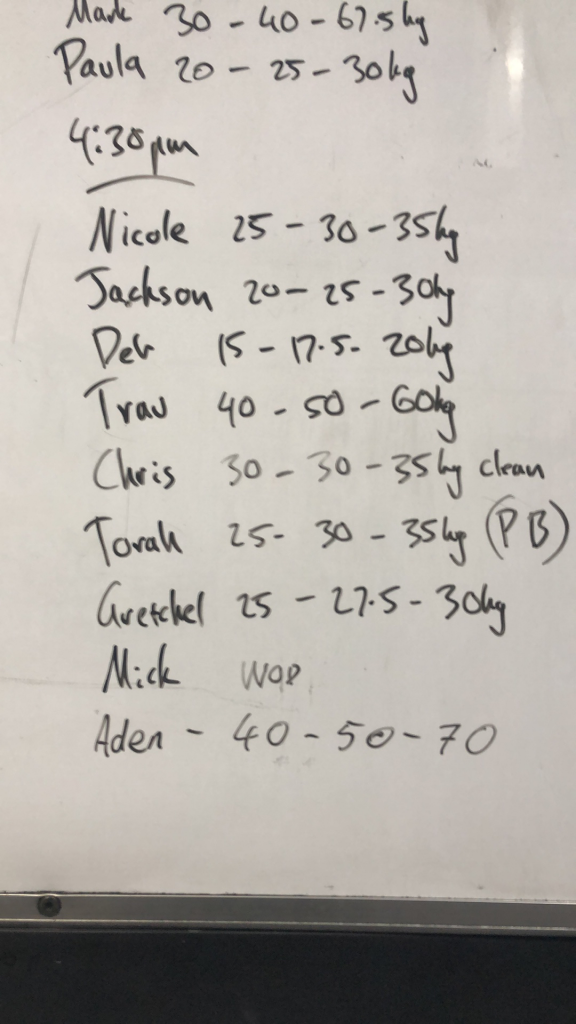 Mark 30 - 40 - 67.5kg
Paula 20 - 25 - 30kg
4:30pm
Nicole 25 - 30 - 35kg
Jackson 20 - 25 - 30kg
Deb 15 - 17.5 - 20kg
Trav 40 - 50 - 60kg
Chris 30 - 30 - 35kg clean
Torah 25 - 30 - 35kg (PB)
Gretchel 25 - 27.5 - 30kg
Mick
Aden - 40 - 50 - 70